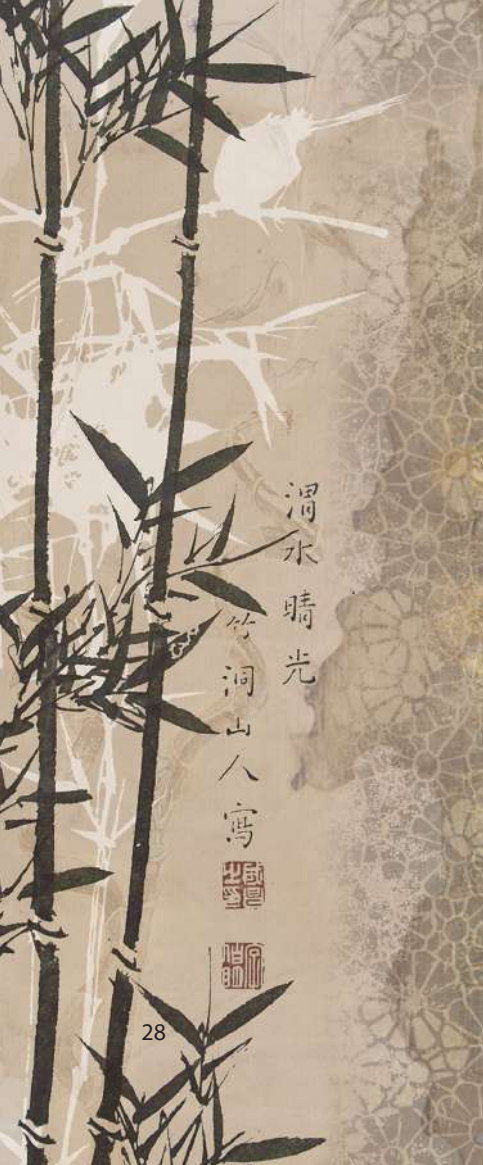 渭水晴光
竹洞山人寫
28